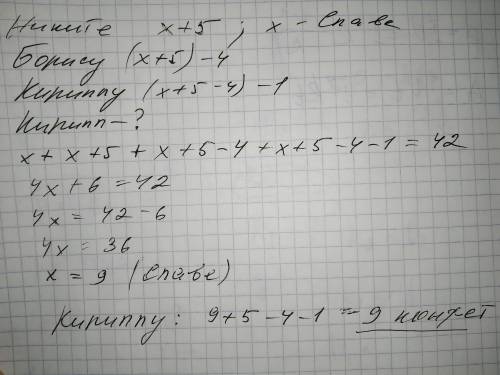 Никите x+5 ; x - Славе
Борису (x+5)-4
Кириллу (x+5-4)-1
Кирилл-?
x+x+5+x+5-4+x+5-4-1=42
4x+6=42
4x=42-6
4x=36
x=9 (Славе)
Кириллу: 9+5-4-1=9 конфет